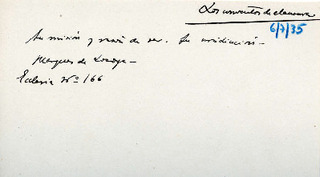 Los conventos de clausura
6/7/35
Su misión y razón de ser. Su irradiación -
Marques de Lozoya -
Ecclesia Nº 166